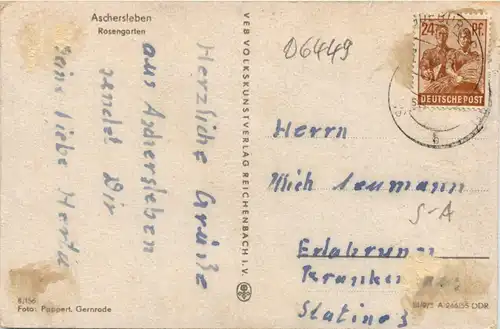 Aschersleben
Rosengarten
Herzliche Grüße
aus Aschersleben
sendet Dir
Deine liebe Herta
8,156
Foto: Poppert, Gernrode
VEB VOLKSKUNSTVERLAG REICHENBACH I. V.
06449
24 PF.
DEUTSCHE POST
b
Herrn
Mich Neumann
S-A
Erlabrunn
Kranken
Station 3
A 266/55 DDR